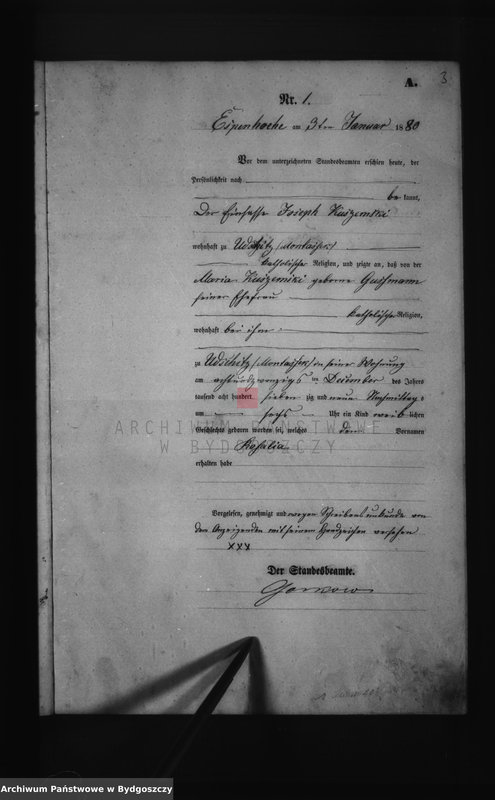 A.
3
Nr. 1.
Espenhoehe am 3ten Januar 1880
Vor dem unterzeichneten Standesbeamten erschien heute, der
Persönlichkeit nach
be kannt,
Der Einsasse Joseph
wohnhaft zu
katholischer Religion, und zeigte an, daß von der
Maria geborene Guhsmann
seiner Ehefrau
katholischer Religion,
wohnhaft bei ihm
zu in seiner Wohnung
am achtundzwanzigs ten December des Jahres
tausend acht hundert sieben zig und neun Nachmittags
um sechs Uhr ein Kind weib lichen
Geschlechts geboren worden sei, welches den Vornamen
Rosalia
erhalten habe
Vorgelesen, genehmigt und wegen Schreibensunkunde von
dem Anzeigenden mit seinem Handzeichen versehen
xxx
Der Standesbeamte.
ARCHIWUM PAŃSTWOWE
W BYDGOSZCZY
Archiwum Państwowe w Bydgoszczy